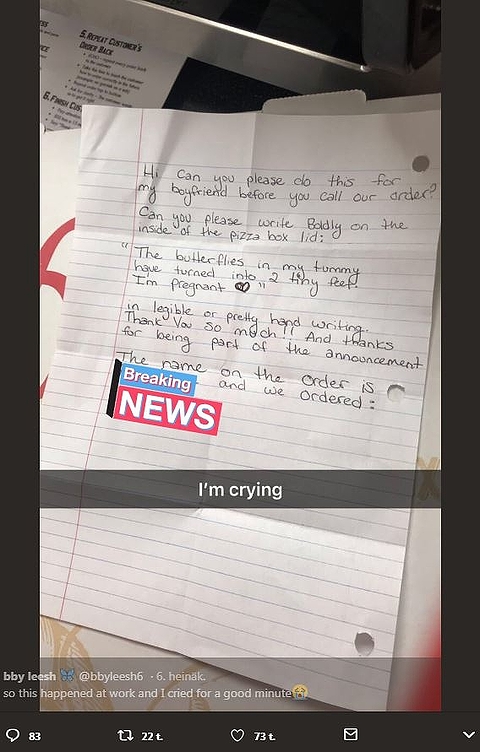 5. REPEAT CUSTOMER'S
ORDER BACK
6. FINISH
Hi Can you please do this for
my boyfriend before you call our order?
Can you please write Boldly on the
inside of the pizza box lid:
"The butterflies in my tummy
have turned into 2 tiny feet.
I'm pregnant "
in legible or pretty hand writing.
Thank You so much!! And thanks
for being part of the announcement
The name on the order is
Breaking
and we ordered:
NEWS
I'm crying
bby leesh @bbyleesh6 · 6. heinäk.
so this happened at work and I cried for a good minute😭
83 22 t. 73 t.